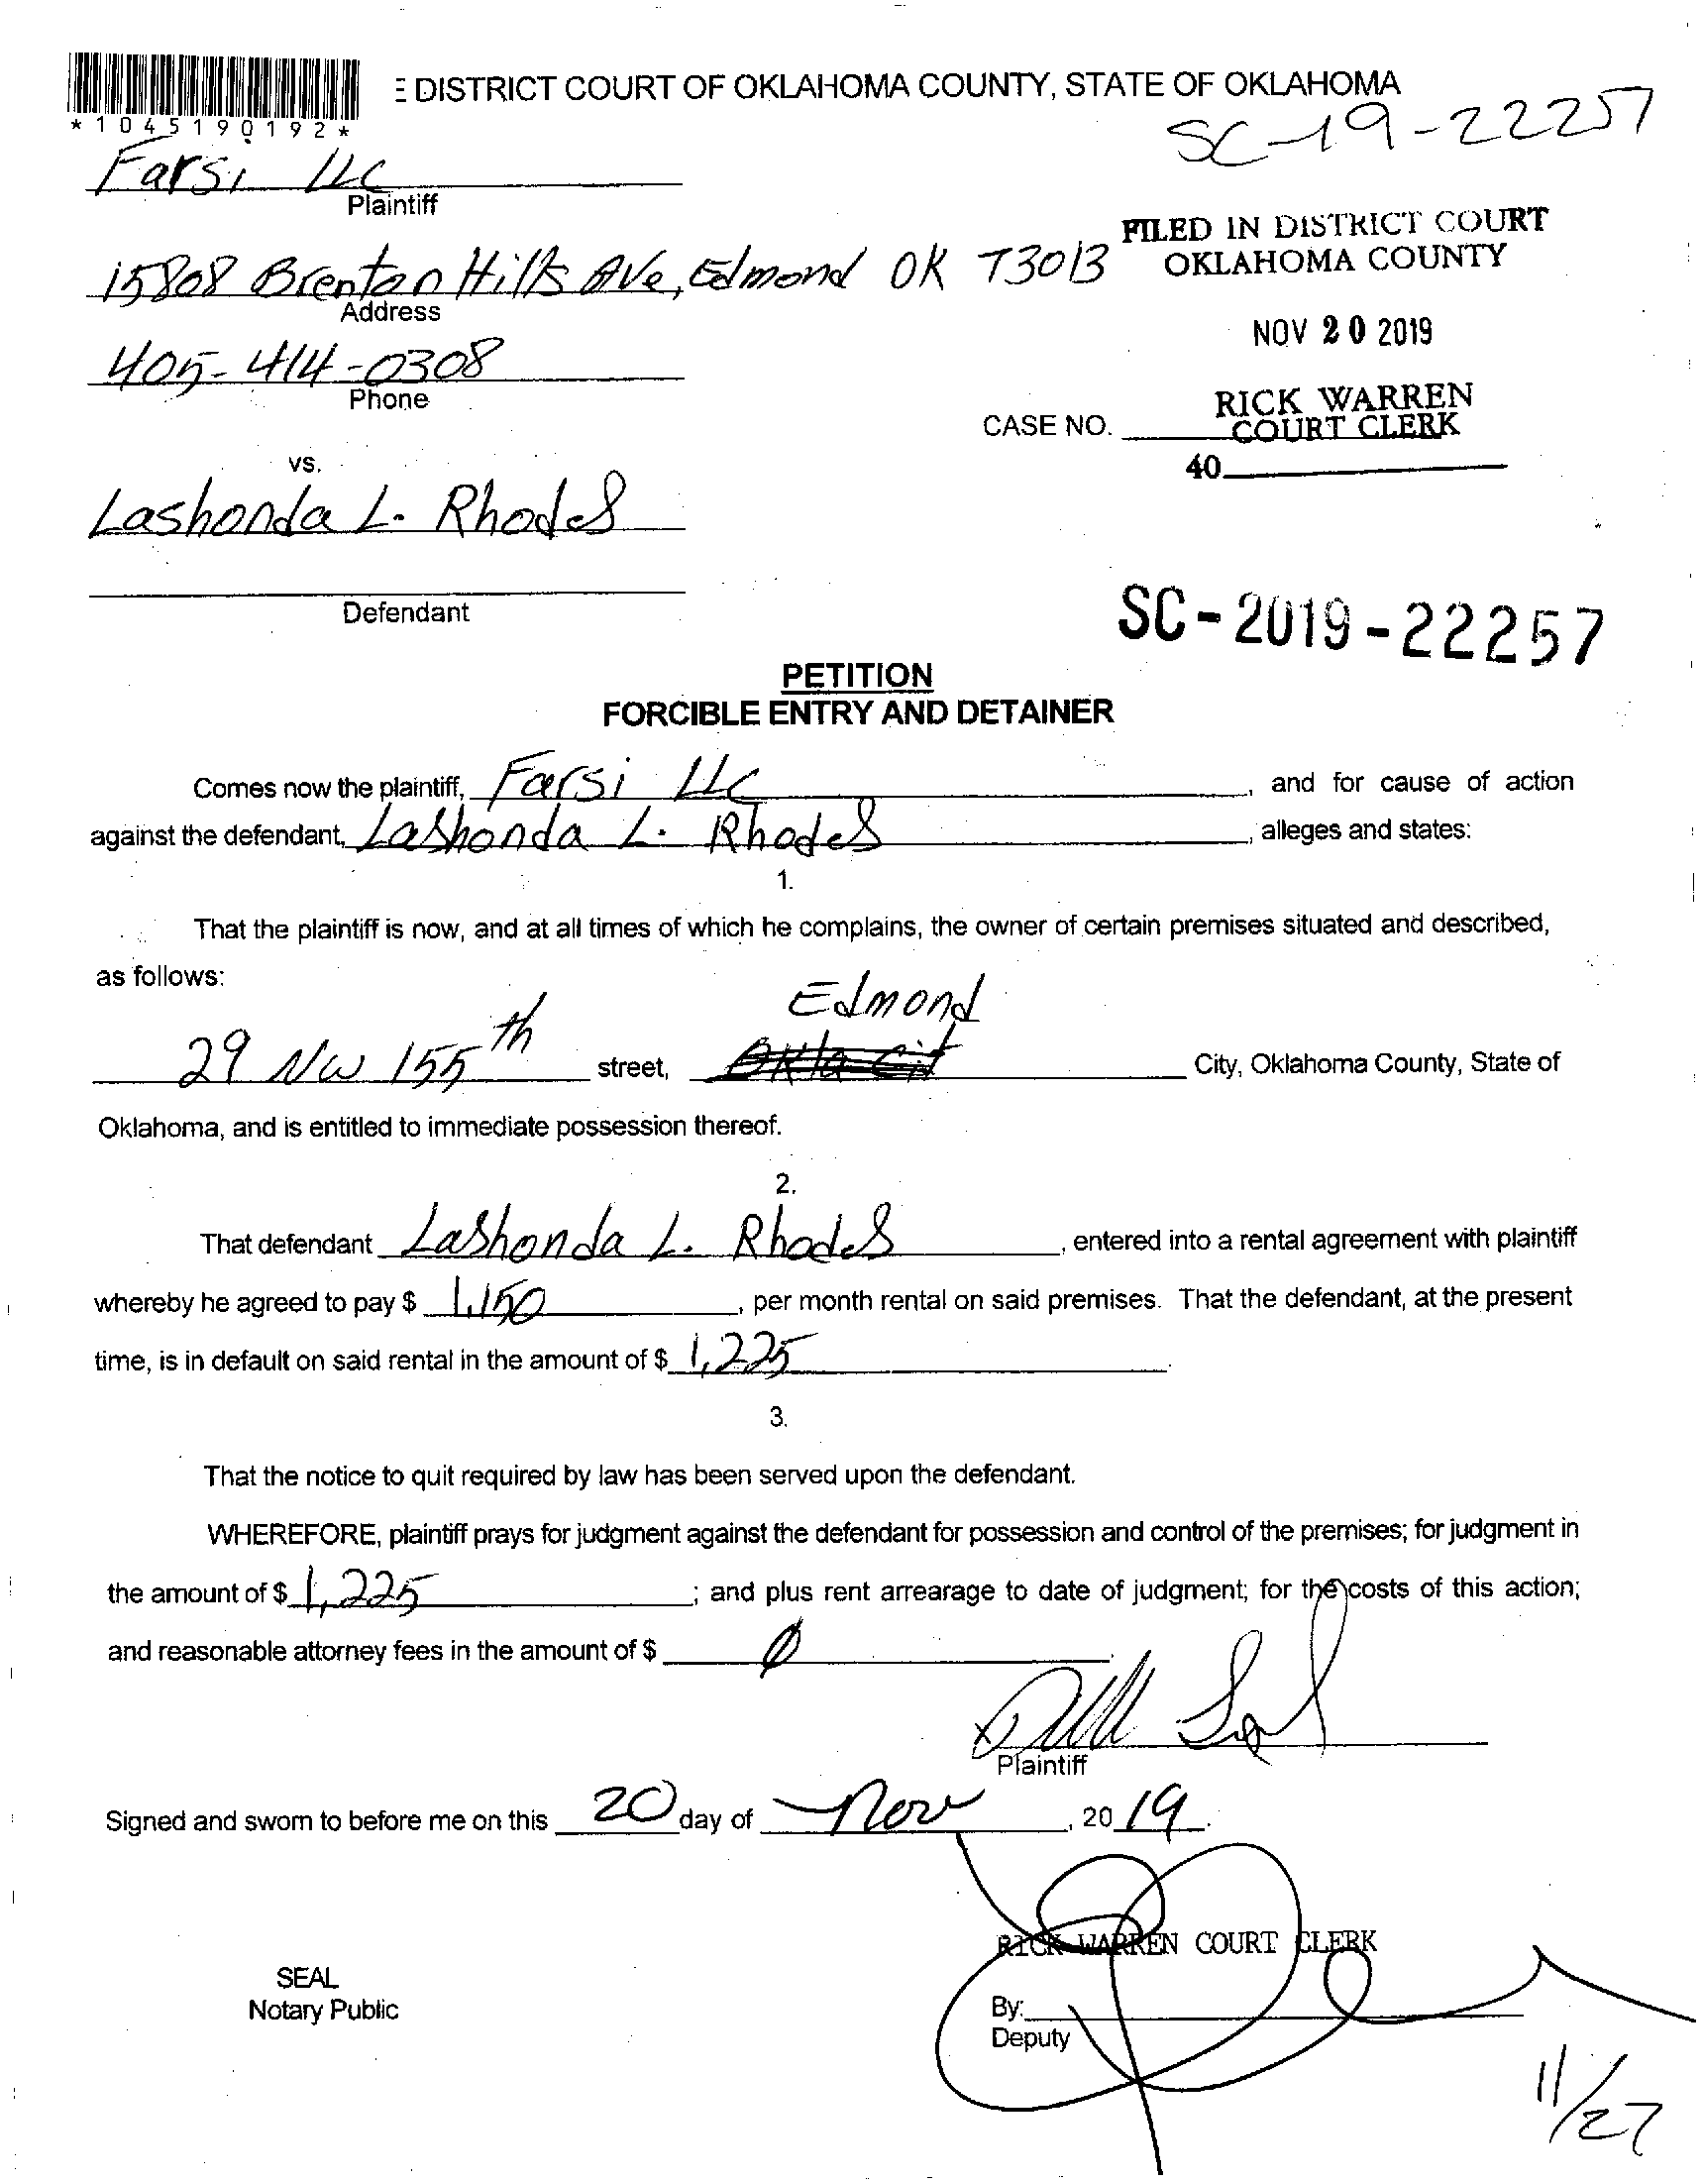 DISTRICT COURT OF OKLAHOMA COUNTY, STATE OF OKLAHOMA
*1045190192*
SC-19-22257
Farsi LLC
Plaintiff
FILED IN DISTRICT COURT
OKLAHOMA COUNTY
15808 Brenton Hills Ave, Edmond OK 73013
Address
NOV 20 2019
405-414-0308
Phone
RICK WARREN
CASE NO. COURT CLERK
vs.
40
Lashonda L. Rhodes
Defendant
SC-2019-22257
PETITION
FORCIBLE ENTRY AND DETAINER
Comes now the plaintiff, Farsi LLC, and for cause of action
against the defendant, Lashonda L. Rhodes, alleges and states:
1.
That the plaintiff is now, and at all times of which he complains, the owner of certain premises situated and described,
as follows:
Edmond
29 NW 155th street, City, Oklahoma County, State of
Oklahoma, and is entitled to immediate possession thereof.
2.
That defendant Lashonda L. Rhodes, entered into a rental agreement with plaintiff
whereby he agreed to pay $ 1,150, per month rental on said premises. That the defendant, at the present
time, is in default on said rental in the amount of $ 1,225.
3.
That the notice to quit required by law has been served upon the defendant.
WHEREFORE, plaintiff prays for judgment against the defendant for possession and control of the premises; for judgment in
the amount of $ 1,225; and plus rent arrearage to date of judgment; for the costs of this action;
and reasonable attorney fees in the amount of $ 0
Plaintiff
Signed and sworn to before me on this 20 day of Nov, 20 19.
RICK WARREN COURT CLERK
SEAL
Notary Public
By:
Deputy
11/27